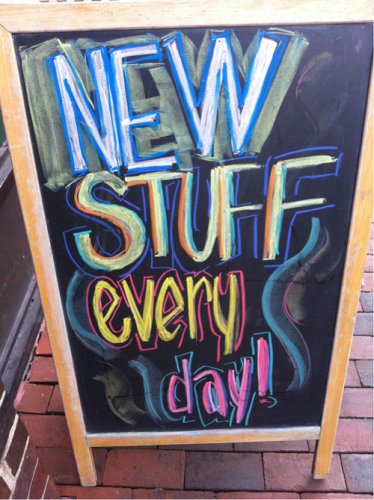 NEW
STUFF
every
day!